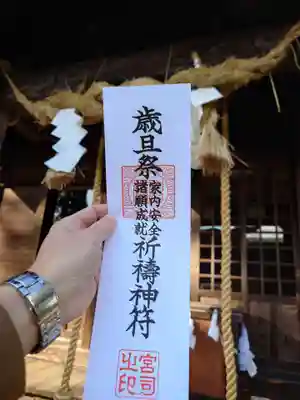 歳旦祭
家内安全
諸願成就
祈禱神符
宮司之印